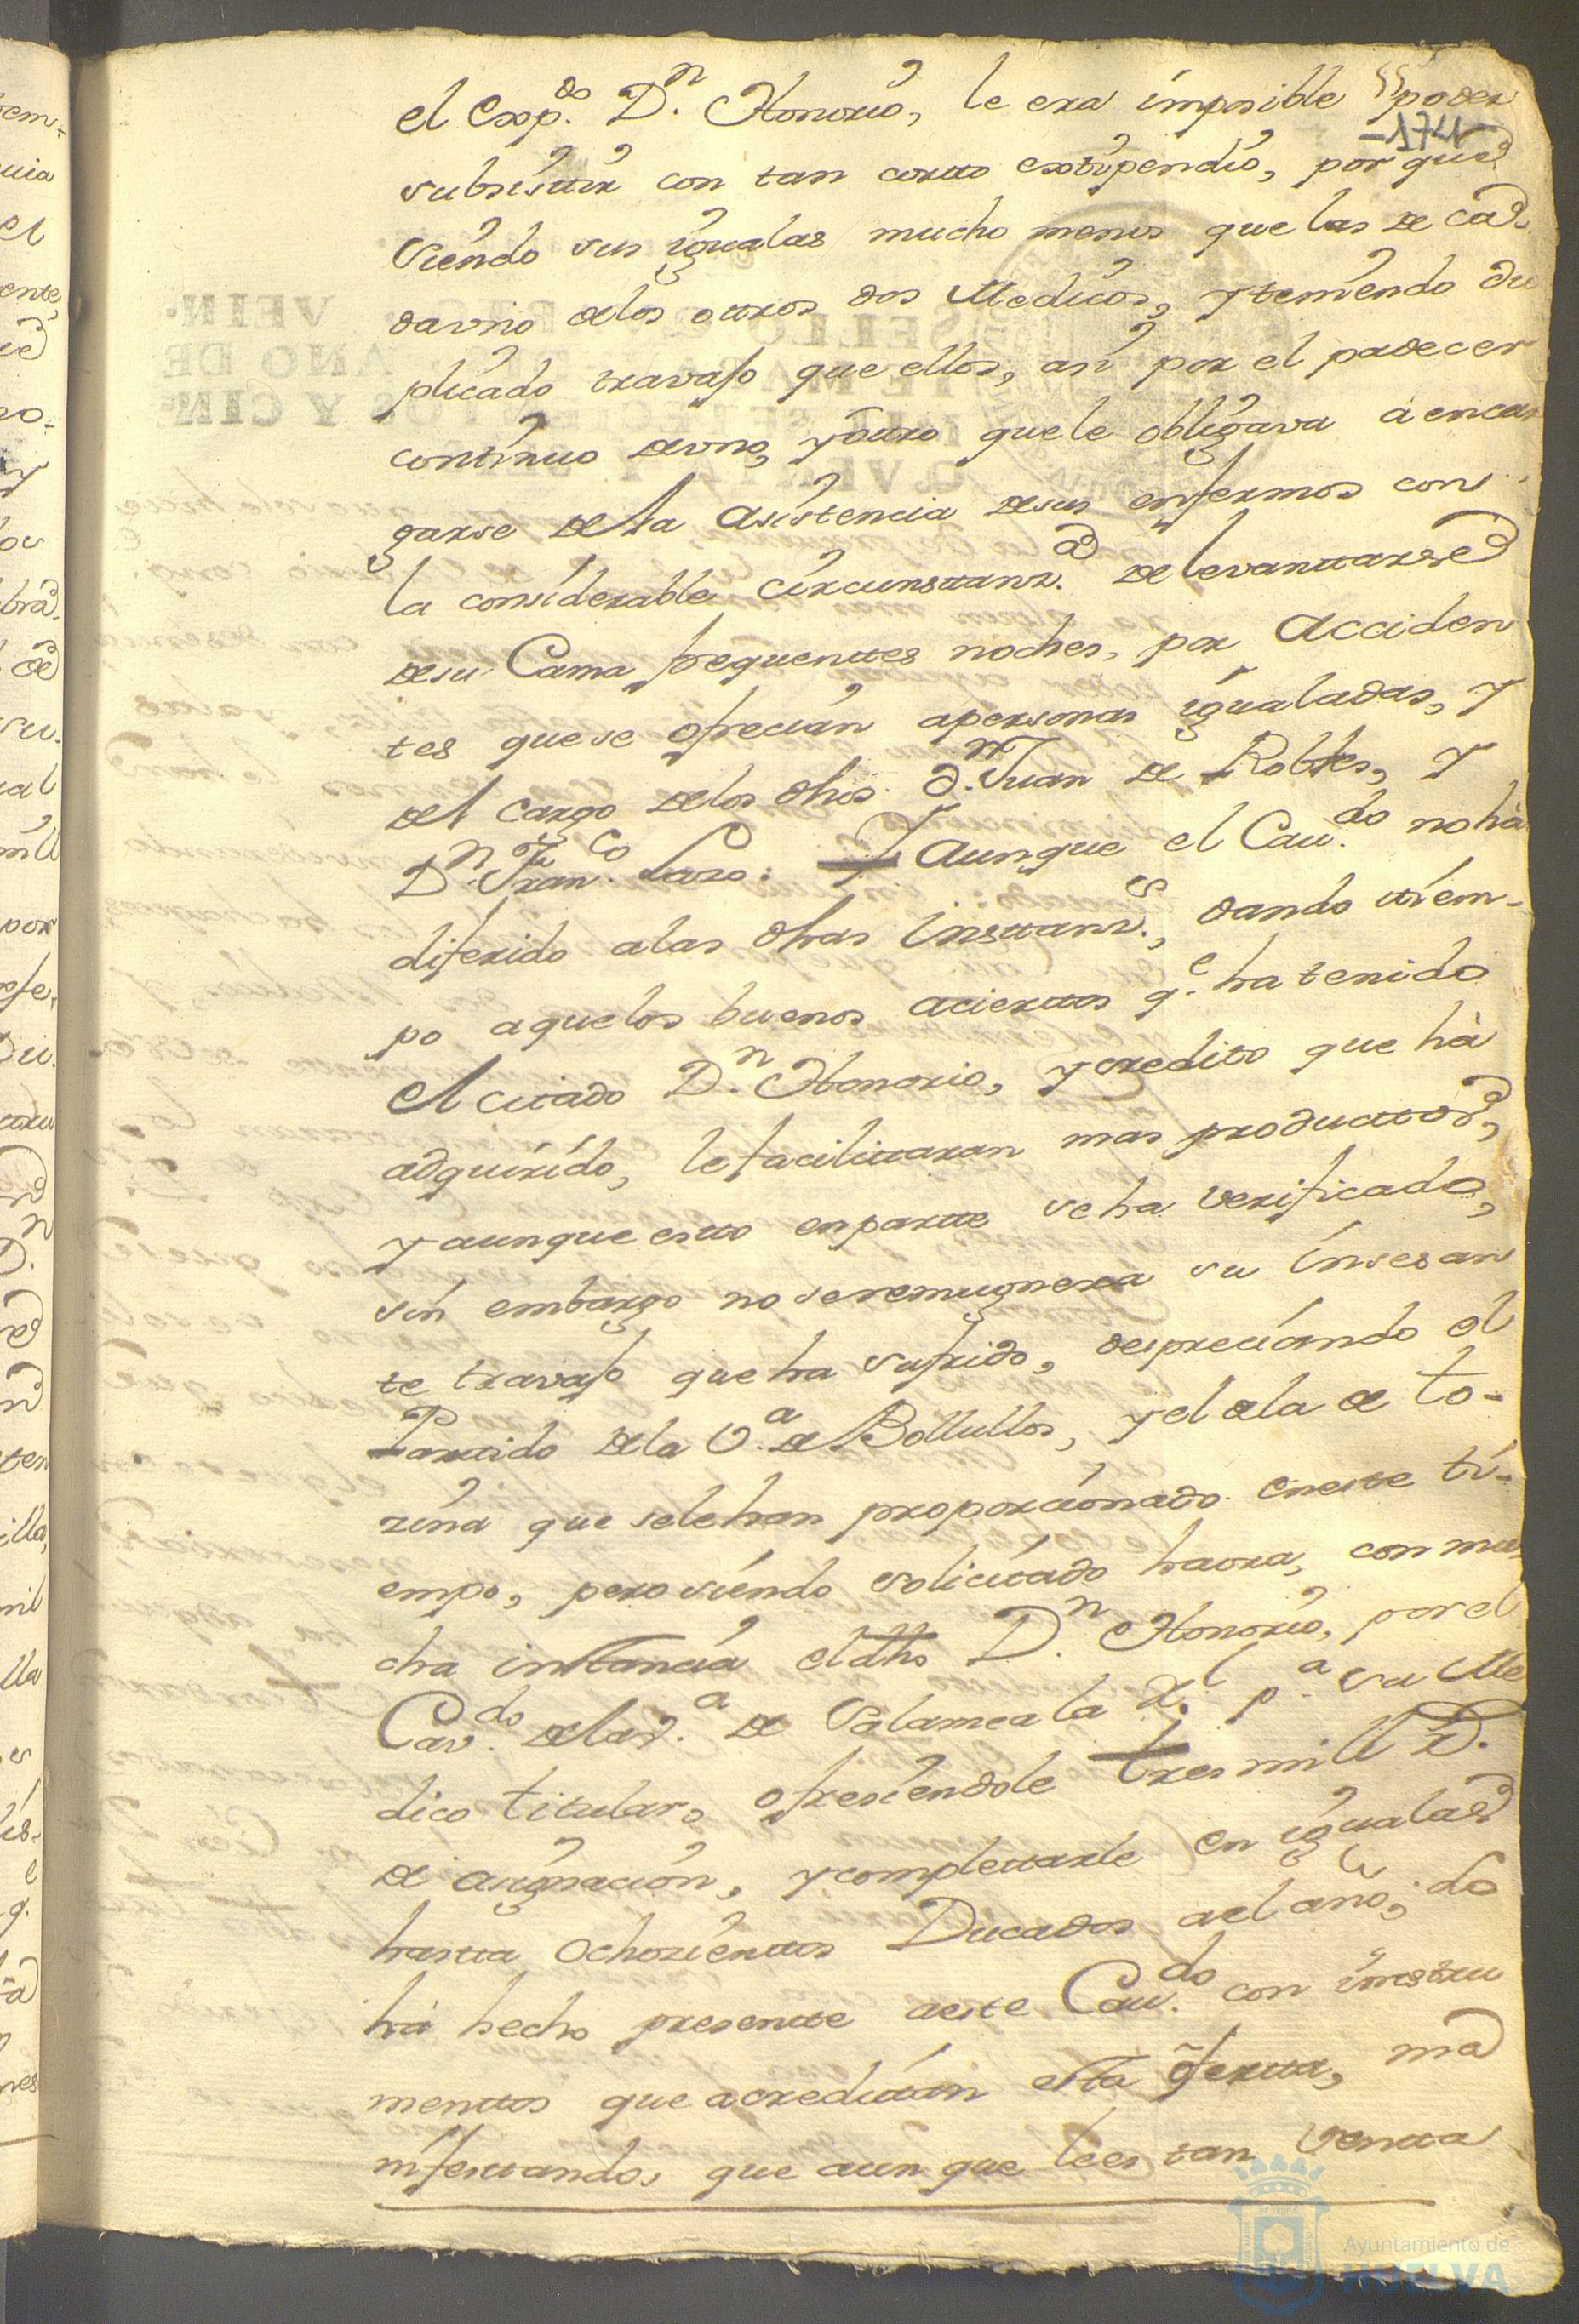 el exp.do D.n Honorio, le era imposible poder
-174-
subsistir con tan cortto extipendio, por que
siendo sus igualas mucho menos que las de ca-
davno delos ottros dos Medicos, y teniendo du
plicado travajo que ellos, asi por el padecer
continuo devno, y ottro que le obligava a encar
garse de la asistencia desus enfermos con
la considerable circunsttanz.a de levanttarse
desu Cama frequenttes noches, por acciden
tes quese ofrecian apersonas igualadas, y
del cargo delos dhos. d.n Juan de Robles, y
D.n Fran.co Lazo: Y aunque el Cau.do no hà
diferido alas dhas insttanz.s, dando ttiem-
po aquelos buenos acierttos q.e ha tenido
el citado D.n Honorio, y credito que hà
adquirido, le facilittaran mas producttos,
y aunque estto enpartte se ha verificado,
sin embargo no se remugnera su insesan
te travajo que ha sufrido, despreciando el
Parttido dela V.a de Bollullos, y el dela de Co-
rina que sele han proporcionado eneste ti-
empo, pero siendo solicitado haora, con mu
cha instancia el dho D.n Honorio, por el
Cav.do dela v.a de Salamea la R.l p.a su Me
dico titular, ofresiendole tres mill R.
de asignacion, y complettarle en igualas
hastta ochozienttos Ducados àel año; lo
hà hecho presentte aeste Cau.do con insttru
menttos que acredittan esta ofertta, ma
nifesttando, que aun que le es tan ventta
Ayuntamiento de
HUELVA
SELLO QVARTO, VEIN-
AÑO DE
Y CIN